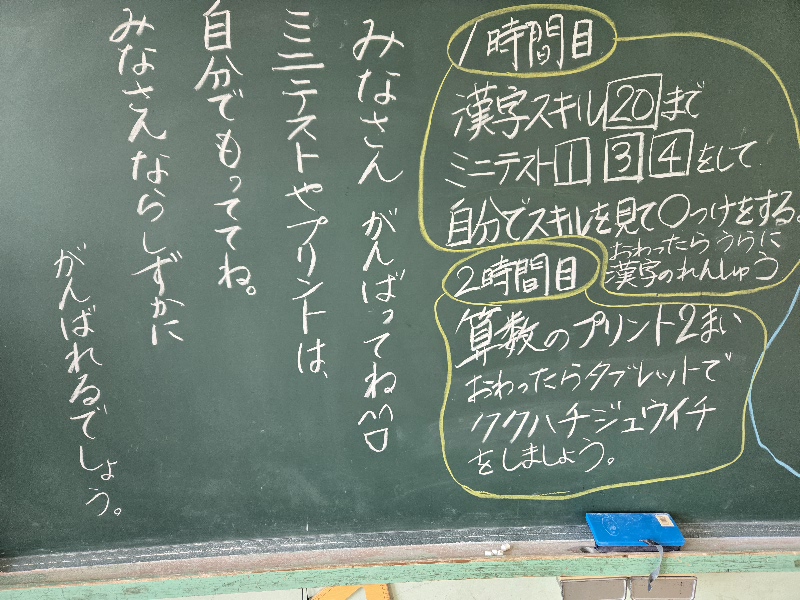 1時間目
漢字スキル20まで
ミニテスト1 3 4をして
自分でスキルを見て○つけをする。
おわったらうらに
漢字のれんしゅう
2時間目
算数のプリント2まい
おわったらタブレットで
ククハチジュウイチ
をしましょう。
みなさん がんばってね^^
ミニテストやプリントは、
自分でもっててね。
みなさんならしずかに
がんばれるでしょう。